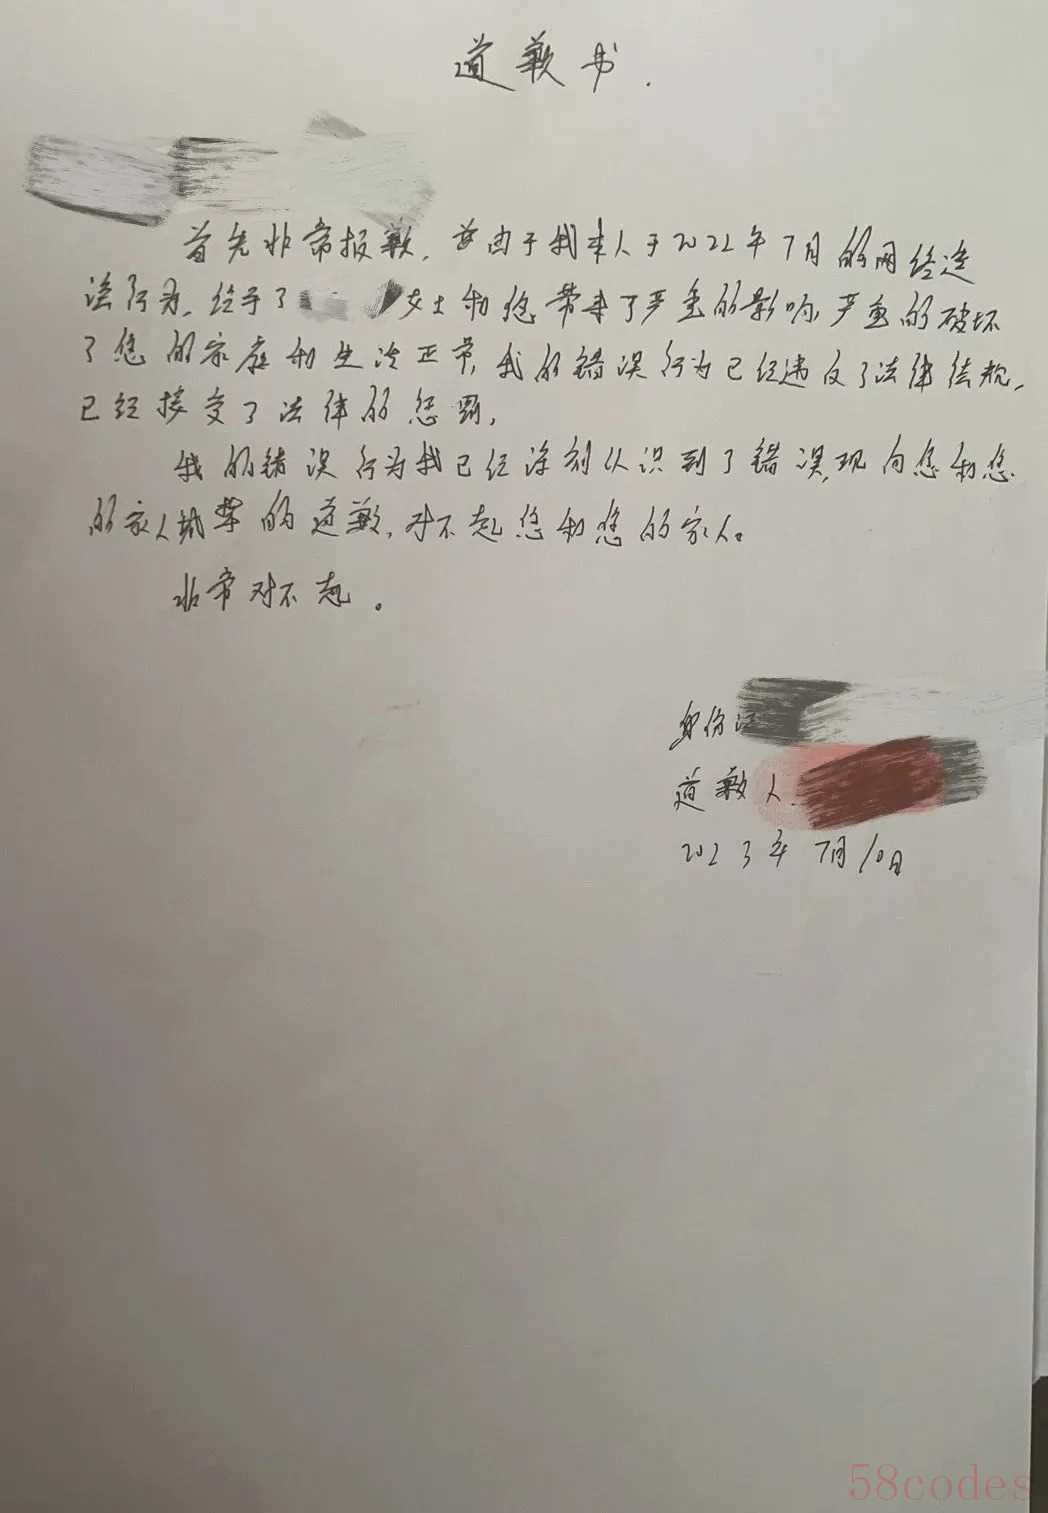 道歉书.
首先非常报歉,由于我本人于2022年7月的网络违
法行为,给予了 女士和您带来了严重的影响,严重的破坏
了您的家庭和生活正常,我的错误行为已经违反了法律法规,
已经接受了法律的惩罚,
我的错误行为我已经深刻认识到了错误,现向您和您
的家人诚挚的道歉,对不起您和您的家人。
非常对不起。
身份证
道歉人
2023年7月10日
58codes